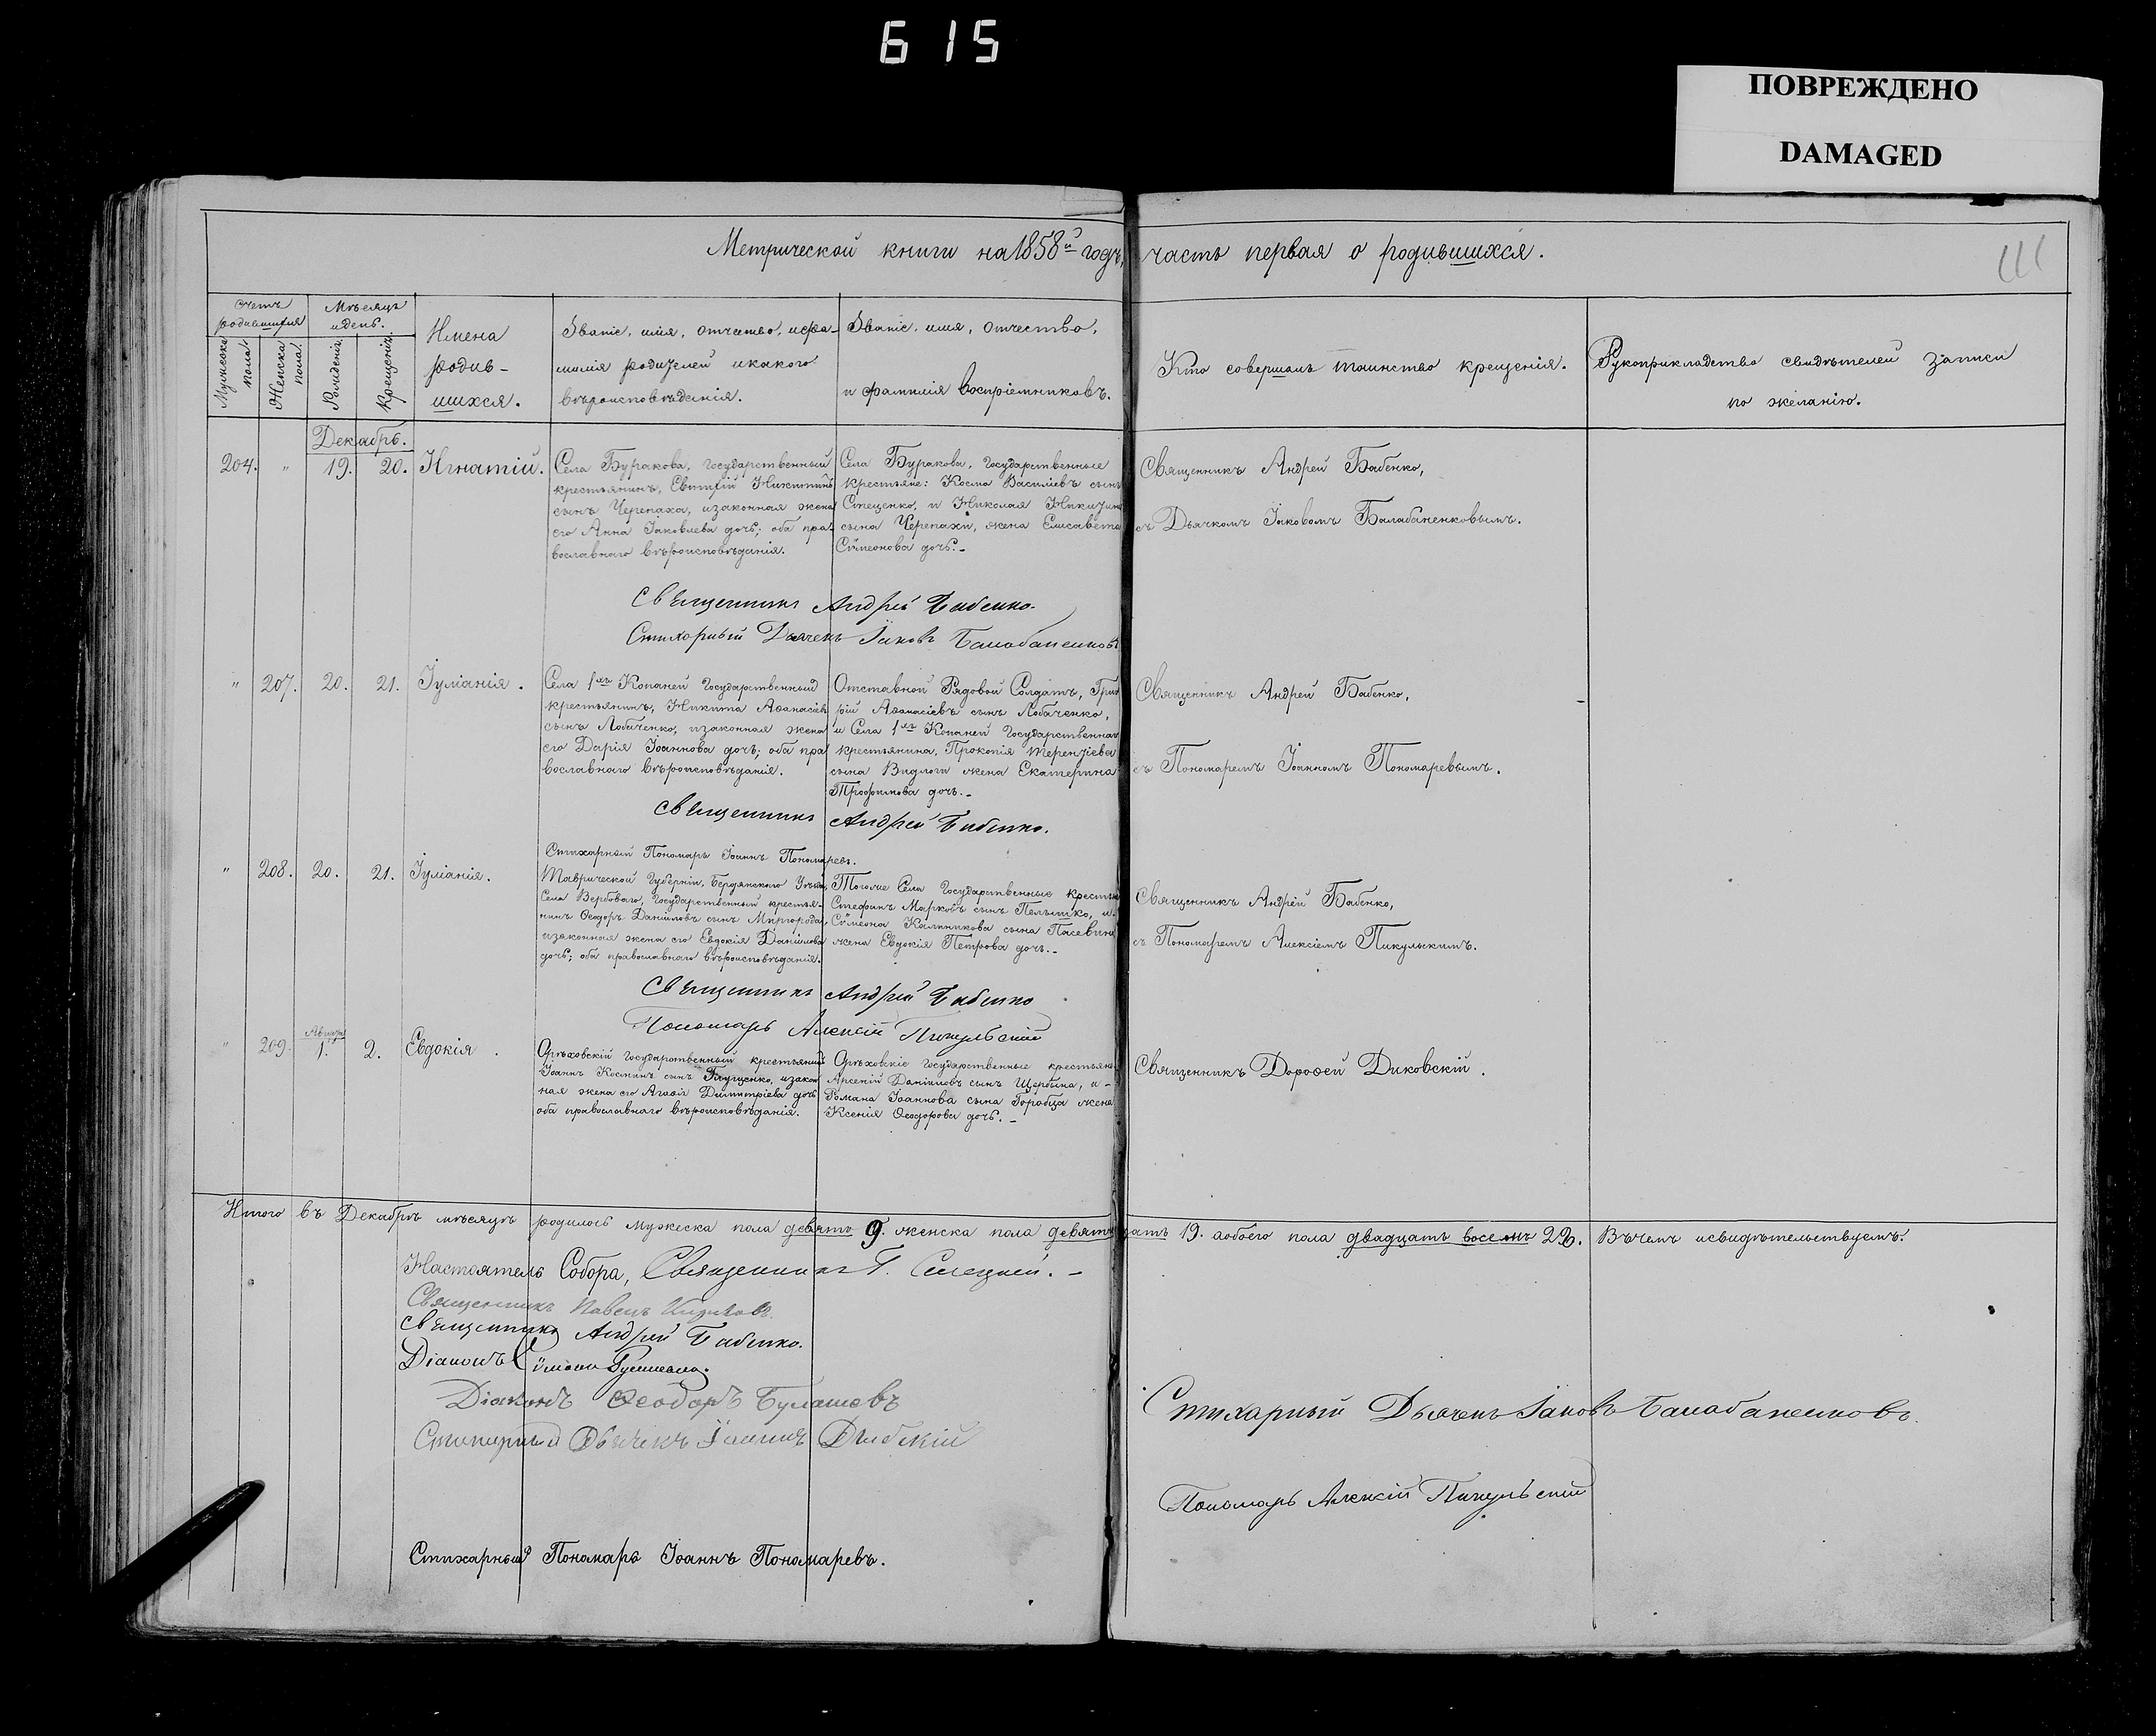 615
ПОВРЕЖДЕНО
DAMAGED
Метрической книги на 1858й годъ, часть первая о родившихся.
111
Счетъ родившихся
Мѣсяцъ и день.
Мужеска пола.
Женска пола.
Рожденія.
Крещенія.
Имена
родив-
шихся.
Званіе, имя, отчество, и фа-
милія родителей и какого
вѣроисповѣданія.
Званіе, имя, отчество,
и фамилія воспріемниковъ.
Кто совершалъ таинство крещенія.
Рукоприкладство свидѣтелей записи
по желанію.
Декабрь.
204. " 19. 20. Игнатій.
Села Буракова, Государственный
крестьянинъ, Никитинъ
сынъ Черепаха, и законная жена
его Анна Іаковлева дочь; оба пра-
вославнаго вѣроисповѣданія.
Села Буракова, Государственные
крестьяне: Косма Василіевъ сынъ
Стеценко, и Николая Никитина
сына Черепахи, жена Елисавета
Сѵмеонова дочь.-
Священникъ Андрей Бабенко,
съ Дьячкомъ Іаковомъ Балабаненковымъ.
Священникъ Андрей Бабенко.
Стихарный Дьячекъ Іаковъ Балабаненковъ
" 207. 20. 21. Іуліанія.
Села 1хъ Копаней Государственный
крестьянинъ, Никита Аѳанасіевъ
сынъ Лобаченко, и законная жена
его Дарія Іоаннова дочь; оба пра-
вославнаго вѣроисповѣданія.
Отставной Рядовой Солдатъ, Григо-
рій Аѳанасіевъ сынъ Лобаченко,
и Села 1хъ Копаней Государственнаго
крестьянина, Прокопія Терентіева
сына Видлоги жена Екатерина
Трофимова дочь.-
Священникъ Андрей Бабенко,
съ Пономаремъ Іоанномъ Пономаревымъ.
Священникъ Андрей Бабенко.
Стихарный Пономарь Іоаннъ Пономаревъ.
" 208. 20. 21. Іуліанія.
Таврической Губерніи, Бердянскаго Уѣзда,
Села Вербоваго, Государственный крестья-
нинъ Ѳеодоръ Даніиловъ сынъ Миргорода,
и законная жена его Евдокія Даніилова
дочь; оба православнаго вѣроисповѣданія.
Тогоже Села Государственные крестьяне
Стефанъ Марковъ сынъ Пелышко, и
Сѵмеона Калинникова сына Пасевина
жена Евдокія Петрова дочь.-
Священникъ Андрей Бабенко,
съ Пономаремъ Алексіемъ Пикульскимъ.
Священникъ Андрей Бабенко
Пономарь Алексій Пикульскій
" 209. 1. 2. Евдокія.
Орѣховскій Государственный крестьянинъ
Іоаннъ Косминъ сынъ Глущенко, и закон-
ная жена его Агаѳія Димитріева дочь
оба православнаго вѣроисповѣданія.
Орѣховскіе Государственные крестьяне
Арсеній Даніиловъ сынъ Щербина, и -
Романа Іоаннова сына Горобца жена
Ксенія Ѳеодорова дочь.-
Священникъ Дороѳей Диковскій.
Итого въ Декабрѣ мѣсяцѣ родилось мужеска пола девять 9. женска пола девятнадцать 19. а обоего пола двадцать восемь 28. Въ чемъ и свидѣтельствуемъ:
Настоятель Собора, Священникъ
Священникъ Павелъ
Священникъ Андрей Бабенко.
Діаконъ Сѵмеонъ
Діаконъ Ѳеодоръ Булашевъ
Стихарный Дьячекъ Іоаннъ
Стихарный Дьячекъ Іаковъ Балабаненковъ.
Пономарь Алексій Пикульскій
Стихарный Пономарь Іоаннъ Пономаревъ.